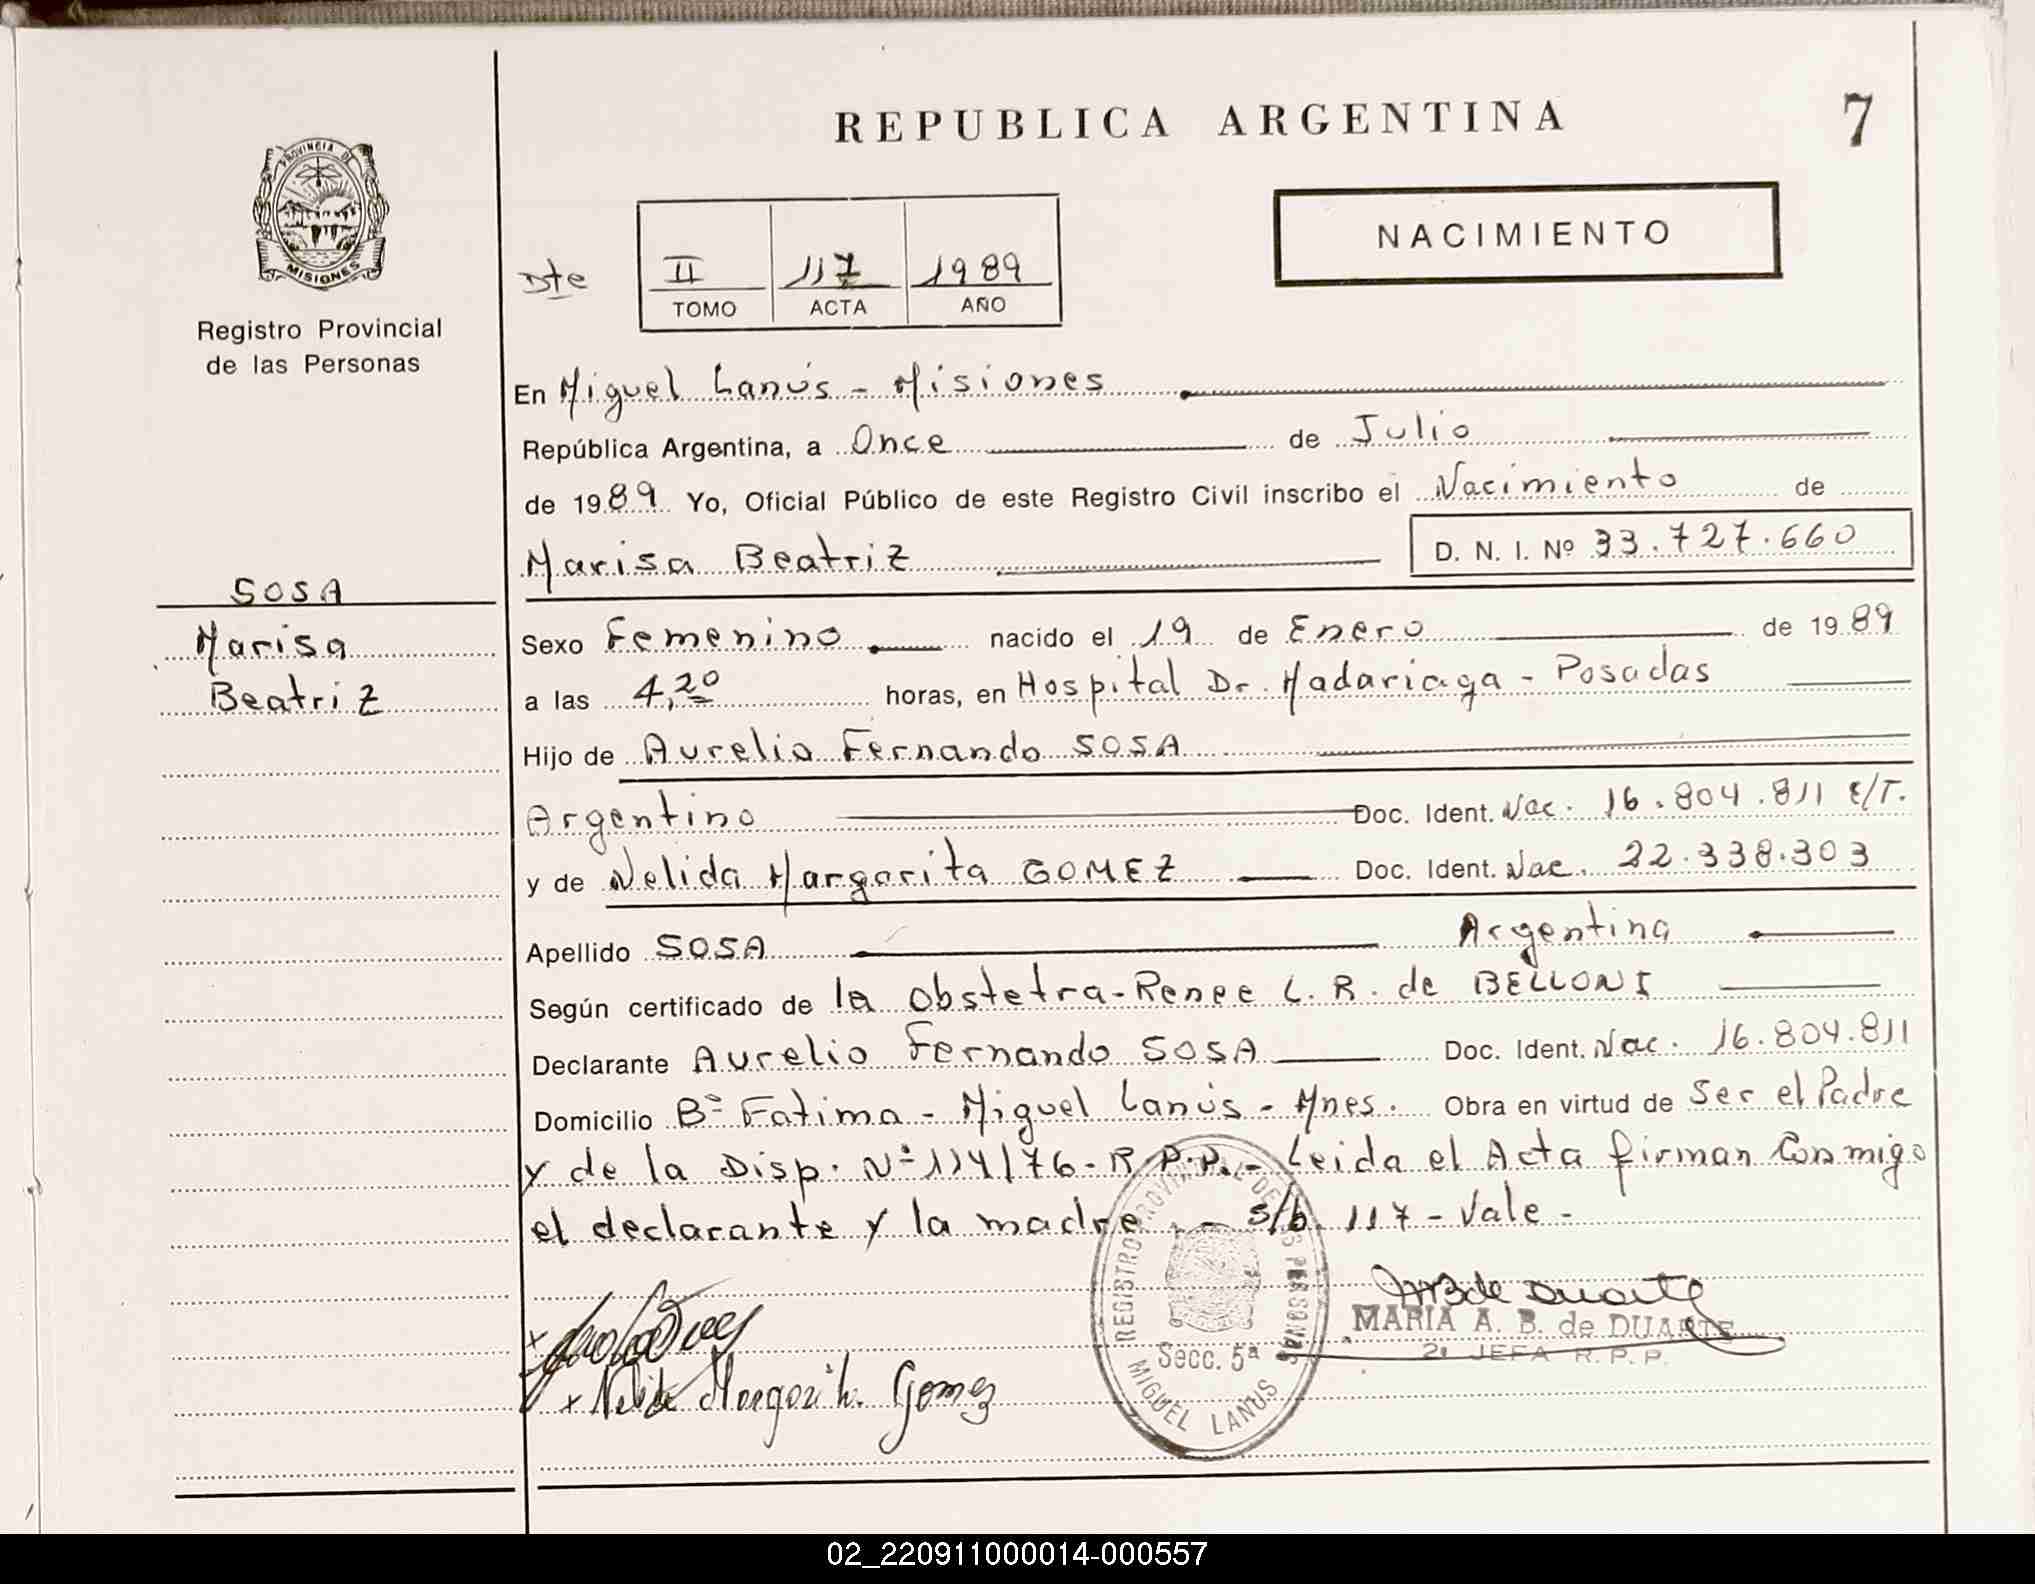 REPUBLICA ARGENTINA
7
PROVINCIA DE
MISIONES
Registro Provincial
de las Personas
NACIMIENTO
Dte
II 117 1989
TOMO ACTA AÑO
En Miguel Lanús - Misiones
República Argentina, a Once de Julio
de 1989 Yo, Oficial Público de este Registro Civil inscribo el Nacimiento de
Marisa Beatriz D. N. I. Nº 33.727.660
SOSA
Marisa
Beatriz
Sexo Femenino nacido el 19 de Enero de 1989
a las 4,20 horas, en Hospital Dr. Madariaga - Posadas
Hijo de Aurelio Fernando SOSA
Argentino Doc. Ident. Nac. 16.804.811 E/T.
y de Nelida Margarita GOMEZ Doc. Ident. Nac. 22.338.303
Apellido SOSA Argentina
Según certificado de la Obstetra-Renee L. R. de BELLONI
Declarante Aurelio Fernando SOSA Doc. Ident. Nac. 16.804.811
Domicilio Bº Fatima - Miguel Lanús - Mnes. Obra en virtud de Ser el Padre
y de la Disp. Nº 114/76 - R.P.P. - Leida el Acta firman Conmigo
el declarante y la madre. - s/b. 117 - Vale -
REGISTRO PROVINCIAL DE LAS PERSONAS
Secc. 5ª
MIGUEL LANUS
MB de Duarte
MARIA A. B. de DUARTE
2ª JEFA R. P. P.
x Nelida Margarita Gomez
02_220911000014-000557